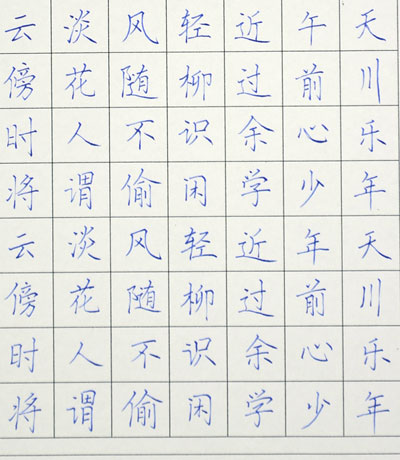 云淡风轻近午天
傍花随柳过前川
时人不识余心乐
将谓偷闲学少年
云淡风轻近年天
傍花随柳过前川
时人不识余心乐
将谓偷闲学少年